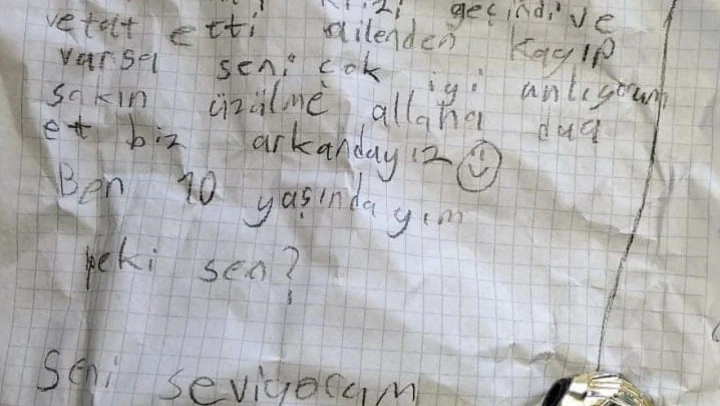 krizi geçindi ve
vefat etti ailenden kayıp
varsa seni çok iyi anlıyorum
sakın üzülme allaha dua
et biz arkandayız
Ben 10 yaşındayım
peki sen?
Seni seviyorum